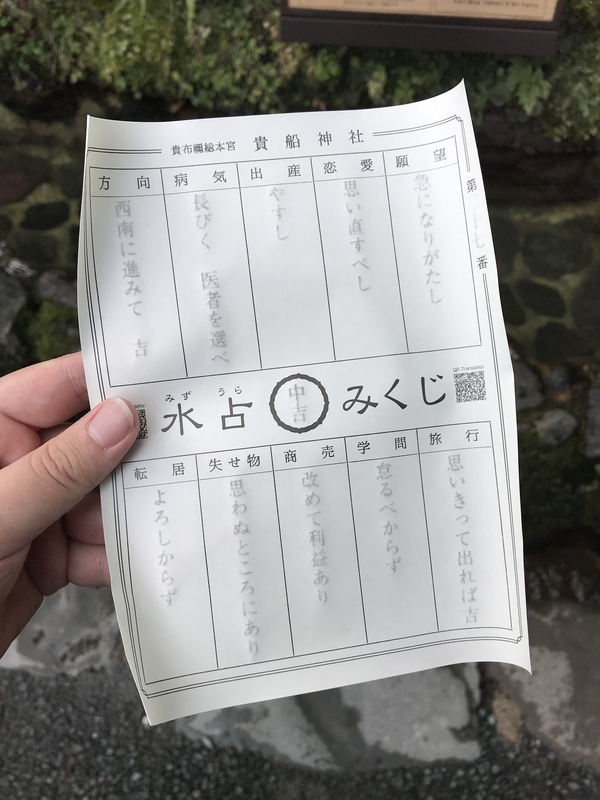 貴布禰総本宮 貴船神社
第十七番
願望
急になりがたし
恋愛
思い直すべし
出産
やすし
病気
長びく 医者を選べ
方向
西南に進みて 吉
みず うら
水占 中吉 みくじ
QR Translator
旅行
思いきって出れば吉
学問
怠るべからず
商売
改めて利益あり
失せ物
思わぬところにあり
転居
よろしからず